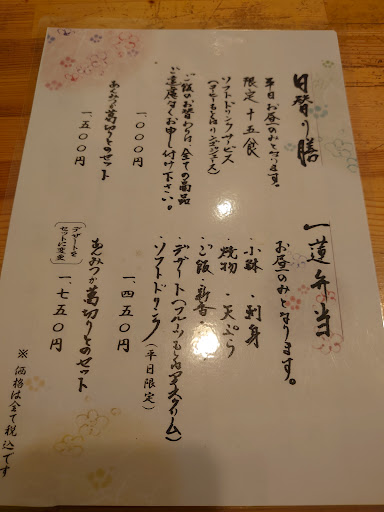 日替り膳
平日お昼のみとなります。
限定十五食
ソフトドリンクサービス
(コーヒーもしくはリンゴジュース)
ご飯のお替わりは全ての商品
ご遠慮なくお申し付け下さい。
一、〇〇〇円
あんみつか葛切りとのセット
一、五〇〇円
一蓮弁当
お昼のみとなります。
・小鉢 ・刺身
・焼物 ・天ぷら
・ご飯 ・新香
・デザート(フルーツもしくはアイスクリーム)
・ソフトドリンク(平日限定)
一、四五〇円
デザートをセットに変更
あんみつか葛切りとのセット
一、七五〇円
※価格は全て税込です